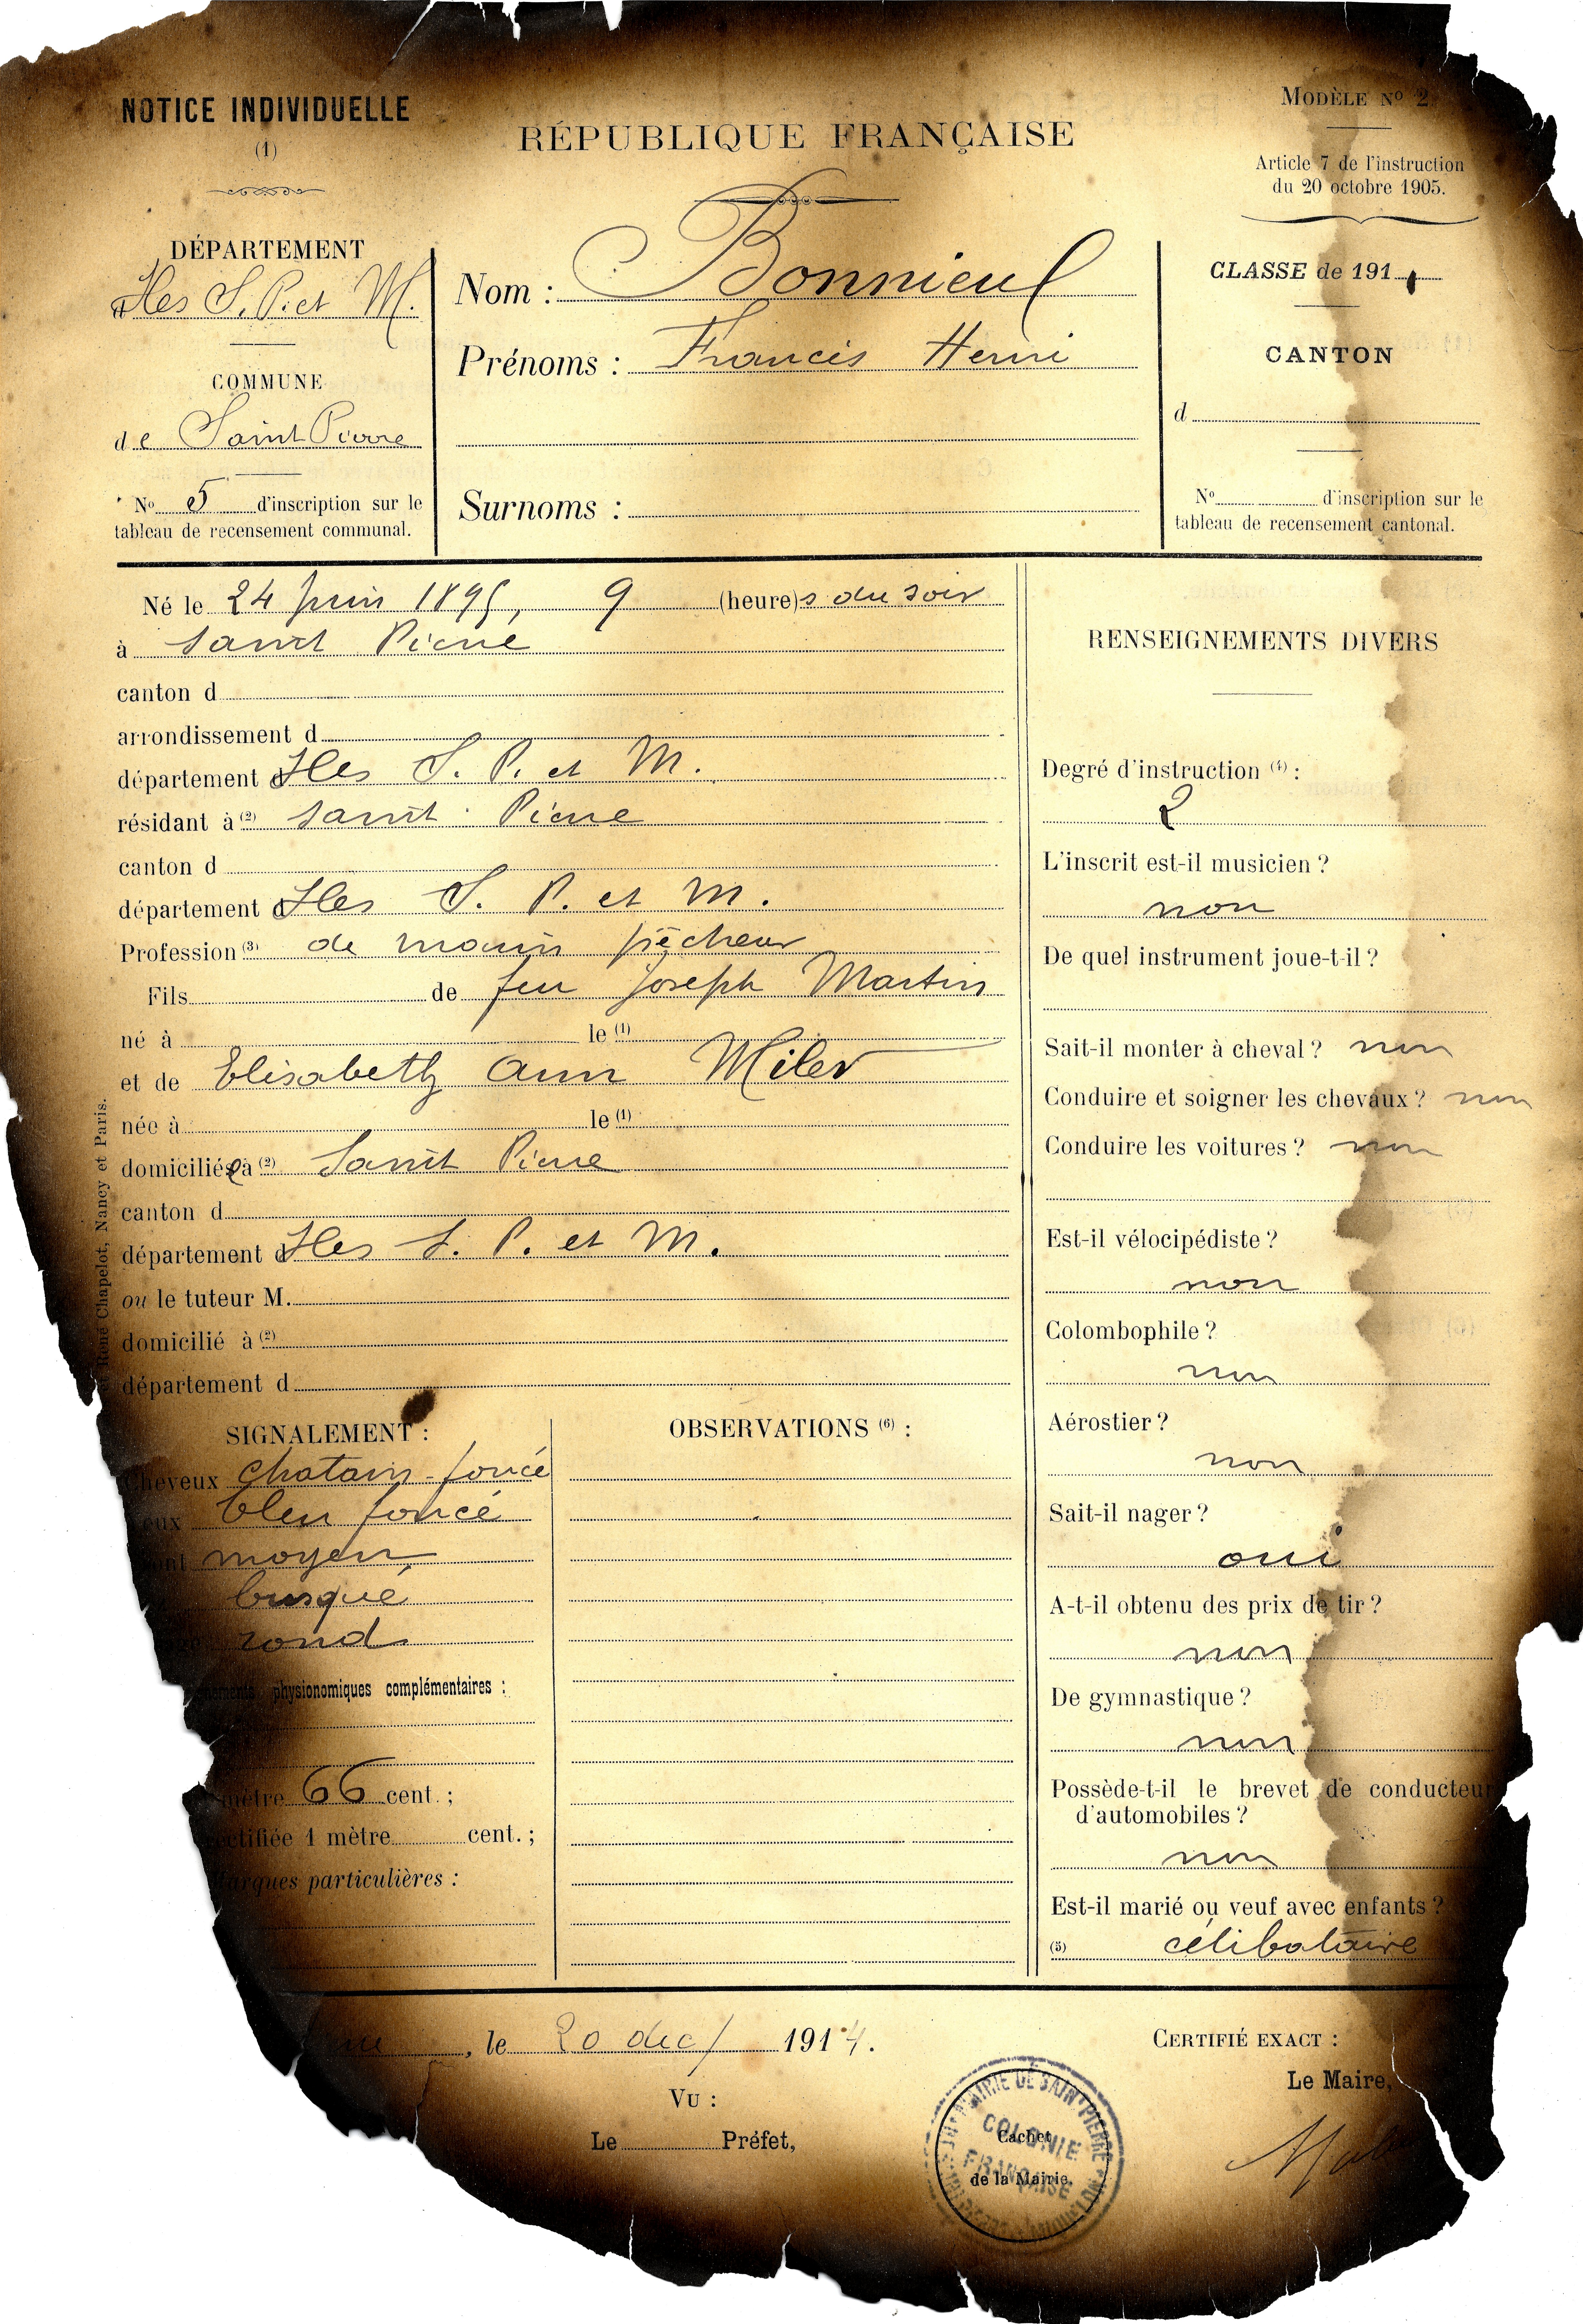 NOTICE INDIVIDUELLE
(1)
RÉPUBLIQUE FRANÇAISE
MODÈLE No 2
Article 7 de l'instruction
du 20 octobre 1905.
DÉPARTEMENT
Iles S. P. et M.
COMMUNE
de Saint Pierre
No 5 d'inscription sur le
tableau de recensement communal.
Nom : Bonnieul
Prénoms : Francis Henri
Surnoms :
CLASSE de 191
CANTON
d
No d'inscription sur le
tableau de recensement cantonal.
Né le 24 juin 1895, 9 (heure)s du soir
à Saint Pierre
canton d
arrondissement d
département d Iles S. P. et M.
résidant à (2) Saint Pierre
canton d
département d Iles S. P. et M.
Profession (3) de marin pêcheur
Fils de feu Joseph Martin
né à le (1)
et de Elisabeth Ann Miler
née à le (1)
domiciliée à (2) Saint Pierre
canton d
département d Iles S. P. et M.
ou le tuteur M.
domicilié à (2)
département d
René Chapelot, Nancy et Paris.
SIGNALEMENT :
Cheveux chatain-foncé
bleu foncé
moyen
busqué
rond
physionomiques complémentaires :
mètre 66 cent. ;
rectifiée 1 mètre cent. ;
Marques particulières :
OBSERVATIONS (6) :
RENSEIGNEMENTS DIVERS
Degré d'instruction (4) :
2
L'inscrit est-il musicien ?
non
De quel instrument joue-t-il ?
Sait-il monter à cheval ? non
Conduire et soigner les chevaux ? non
Conduire les voitures ? non
Est-il vélocipédiste ?
non
Colombophile ?
non
Aérostier ?
non
Sait-il nager ?
oui
A-t-il obtenu des prix de tir ?
non
De gymnastique ?
non
Possède-t-il le brevet de conducteur
d'automobiles ?
non
Est-il marié ou veuf avec enfants ?
(5) célibataire
, le 20 dec/ 1914.
VU :
Le Préfet,
CERTIFIÉ EXACT :
Le Maire,
MAIRIE DE SAINT PIERRE
COLONIE
FRANÇAISE
Cachet
de la Mairie.